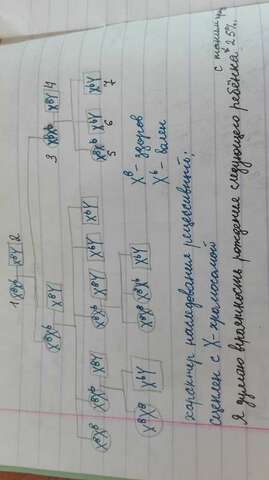 1 XᴮXᵇ XᴮY 2
XᴮXᵇ XᴮY 3 XᴮXᵇ XᴮY 4
XᴮXᴮ XᴮXᵇ XᵇY XᴮXᵇ XᴮY XᵇY XᵇY XᴮXᵇ XᵇY XᵇY
5 6 7
XᴮXᴮ XᵇY XᴮXᴮ XᴮXᵇ XᵇY
Xᴮ - здоров
Xᵇ - болен
характер наследования рецессивный;
сцеплен с X-хромосомой
я думаю вероятность рождения следующего ребёнка 25%.
с таким